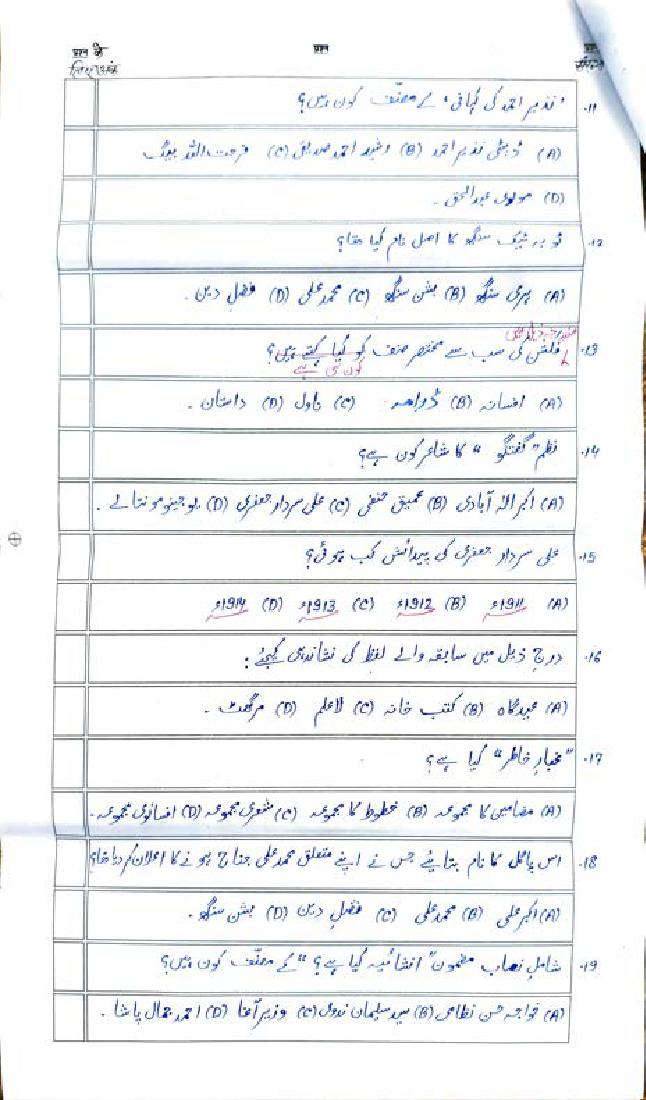 प्रश्न के
लिए अंक
प्रश्न
۱۱۔ "نذیر احمد کی کہانی" کے مصنّف کون ہیں؟
(A) ڈپٹی نذیر احمد (B) رشید احمد صدیقی (C) فرحت اللہ بیگ
(D) مولوی عبدالحق ۔
۱۲۔ ٹوبہ ٹیک سنگھ کا اصل نام کیا تھا؟
(A) ہری سنگھ (B) بشن سنگھ (C) محمد علی (D) فضل دین ۔
مندرجہ ذیل میں
۱۳۔ فکشن کی سب سے مختصر صنف کو کیا کہتے ہیں؟
کون سی ہے
(A) افسانہ (B) ڈرامہ (C) ناول (D) داستان ۔
۱۴۔ نظم "گفتگو" کا شاعر کون ہے؟
(A) اکبر الہ آبادی (B) عمیق حنفی (C) علی سردار جعفری (D) یوجینو مونتالے ۔
۱۵۔ علی سردار جعفری کی پیدائش کب ہوئی؟
(A) 1911ء (B) 1912ء (C) 1913ء (D) 1914ء
۱۶۔ درج ذیل میں سابقہ والے لفظ کی نشاندہی کیجئے :
(A) عیدگاہ (B) کتب خانہ (C) لاعلم (D) مرگھٹ ۔
۱۷۔ "غبارِ خاطر" کیا ہے؟
(A) مضامین کا مجموعہ (B) خطوط کا مجموعہ (C) شعری مجموعہ (D) افسانوی مجموعہ ۔
۱۸۔ اس پاگل کا نام بتایئے جس نے اپنے متعلق محمد علی جناح ہونے کا اعلان کر دیا تھا؟
(A) اکبر علی (B) محمد علی (C) فضل دین (D) بشن سنگھ ۔
۱۹۔ شاملِ نصاب مضمون "انشائیہ کیا ہے؟" کے مصنّف کون ہیں؟
(A) خواجہ حسن نظامی (B) سید سلیمان ندوی (C) وزیر آغا (D) احمد جمال پاشا ۔